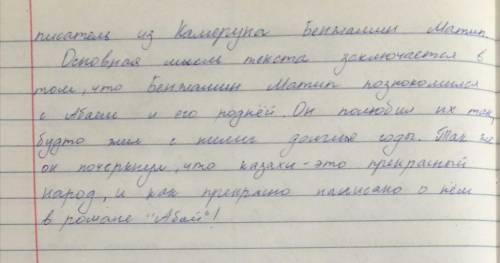 писатель из Камеруна Бенжамин Матип
Основная мысль текста заключается в
том, что Бенжамин Матип познокомился
с Абаем и его роднёй. Он полюбил их так,
будто жил с ними долгие годы. Так же
он почеркнул, что казахи - это прекрасный
народ, и как прекрасно написано о нём
в романе "Абай"!